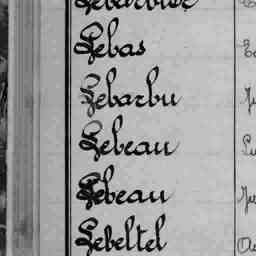 Lebarbier
Lebas
Lebarbu
Lebeau
Lebeau
Lebeltel